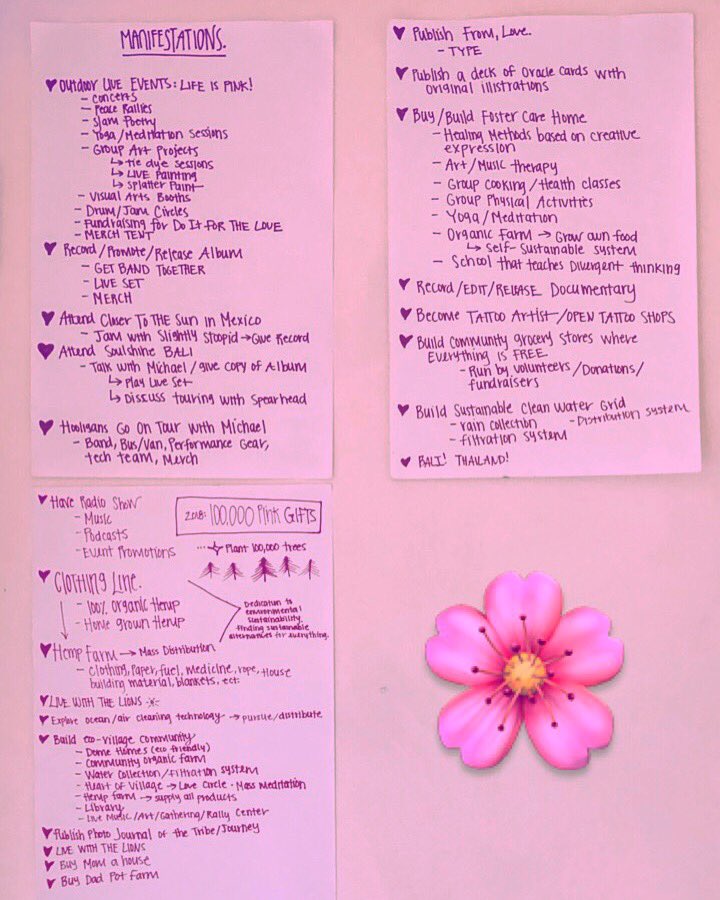 MANIFESTATIONS.
♥ OUTDOOR LIVE EVENTS: LIFE IS PINK!
- Concerts
- Peace Rallies
- Slam Poetry
- Yoga/Meditation Sessions
- Group Art Projects
↳ tie dye sessions
↳ LIVE Painting
↳ Splatter Paint
- Visual Arts Booths
- Drum/Jam Circles
- Fundraising for Do IT FOR THE LOVE
- MERCH TENT
♥ Record/Promote/Release Album
- GET BAND TOGETHER
- LIVE SET
- MERCH
♥ Attend Closer To THE Sun in Mexico
- Jam with Slightly Stoopid → Give Record
♥ Attend Soulshine BALI
- Talk with Michael/give copy of Album
↳ Play Live Set
↳ Discuss touring with Spearhead
♥ Hooligans Go On Tour with Michael
- Band, Bus/Van, Performance Gear,
tech team, Merch
♥ Publish From, Love.
- TYPE
♥ Publish a deck of Oracle Cards with
original illustrations
♥ Buy/Build Foster Care Home
- Healing Methods based on creative
expression
- Art/Music therapy
- Group Cooking/Health classes
- Group Physical Activities
- Yoga/Meditation
- Organic Farm → Grow own food
↳ Self-Sustainable system
- School that teaches Divergent thinking
♥ Record/EDIT/RELEASE Documentary
♥ Become TATTOO Artist/OPEN TATTOO SHOPS
♥ Build Community grocery stores where
Everything is FREE
- Run by volunteers/Donations/
fundraisers
♥ Build Sustainable Clean Water Grid
- rain collection - Distribution system
- filtration system
♥ BALI! THAILAND!
♥ Have Radio Show
- Music
- Podcasts
- Event Promotions
2018: 100,000 Pink GIFTS
... Plant 100,000 trees
♥ Clothing Line.
- 100% Organic Hemp
- Home grown Hemp
Dedication to
environmental
sustainability.
finding sustainable
alternatives for everything.
♥ Hemp Farm → Mass Distribution
- Clothing, Paper, fuel, medicine, rope, House
building material, blankets, ect.
♥ LIVE WITH THE LIONS
♥ Explore ocean/air cleaning technology → pursue/distribute
♥ Build eco-village community
- Dome Homes (eco friendly)
- Community organic farm
- Water Collection/Filtration system
- Heart of Village → Love Circle · Mass Meditation
- Hemp farm → supply all products
- Library
- Live Music/Art/Gathering/Rally Center
♥ Publish Photo Journal of the Tribe/Journey
♥ LIVE WITH THE LIONS
♥ Buy Mom a house
♥ Buy Dad Pot farm